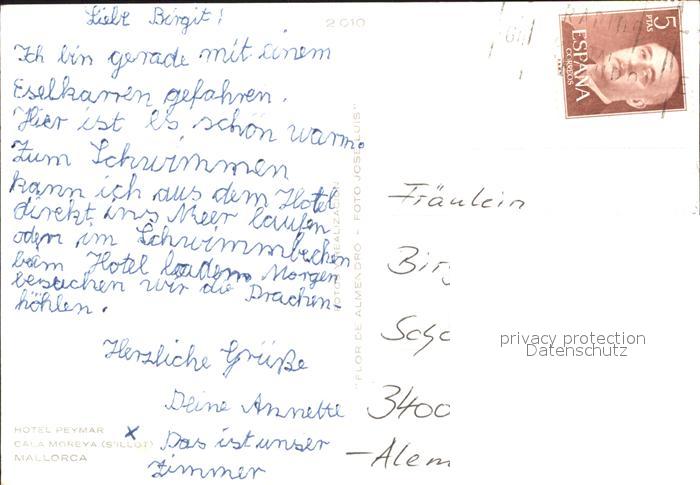 Liebe Birgit!
Ich bin gerade mit einem
Eselkarren gefahren.
Hier ist es schön warm.
Zum Schwimmen
kann ich aus dem Hotel
direkt ins Meer laufen
oder im Schwimmbecken
beim Hotel baden. Morgen
besuchen wir die Drachen-
höhlen.
Herzliche Grüße
Deine Annette
x Das ist unser
Zimmer
HOTEL PEYMAR
CALA MOREYA (S'ILLOT)
MALLORCA
2010
"FLOR DE ALMENDRO - FOTO JOSE LUIS"
5
PTAS
ESPAÑA
CORREOS
Fräulein
3400
privacy protection
Datenschutz